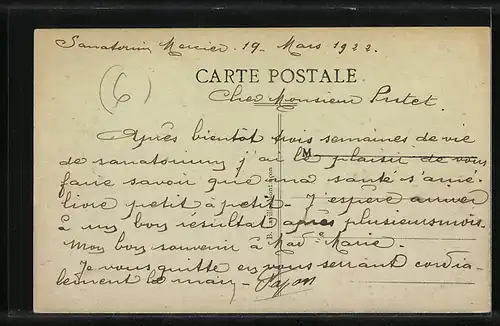 Sanatorium Mercier. 19. Mars 1922.
CARTE POSTALE
(6)
Cher Monsieur Putet.
Après bientôt trois semaines de vie
M
de sanatorium j'ai le plaisir de vous
faire savoir que ma santé s'amé-
liore petit à petit - J'espère arriver
à un bon résultat après plusieurs mois.
Mon bon souvenir à Made Marie.
Je vous quitte en vous serrant cordia-
lement la main -